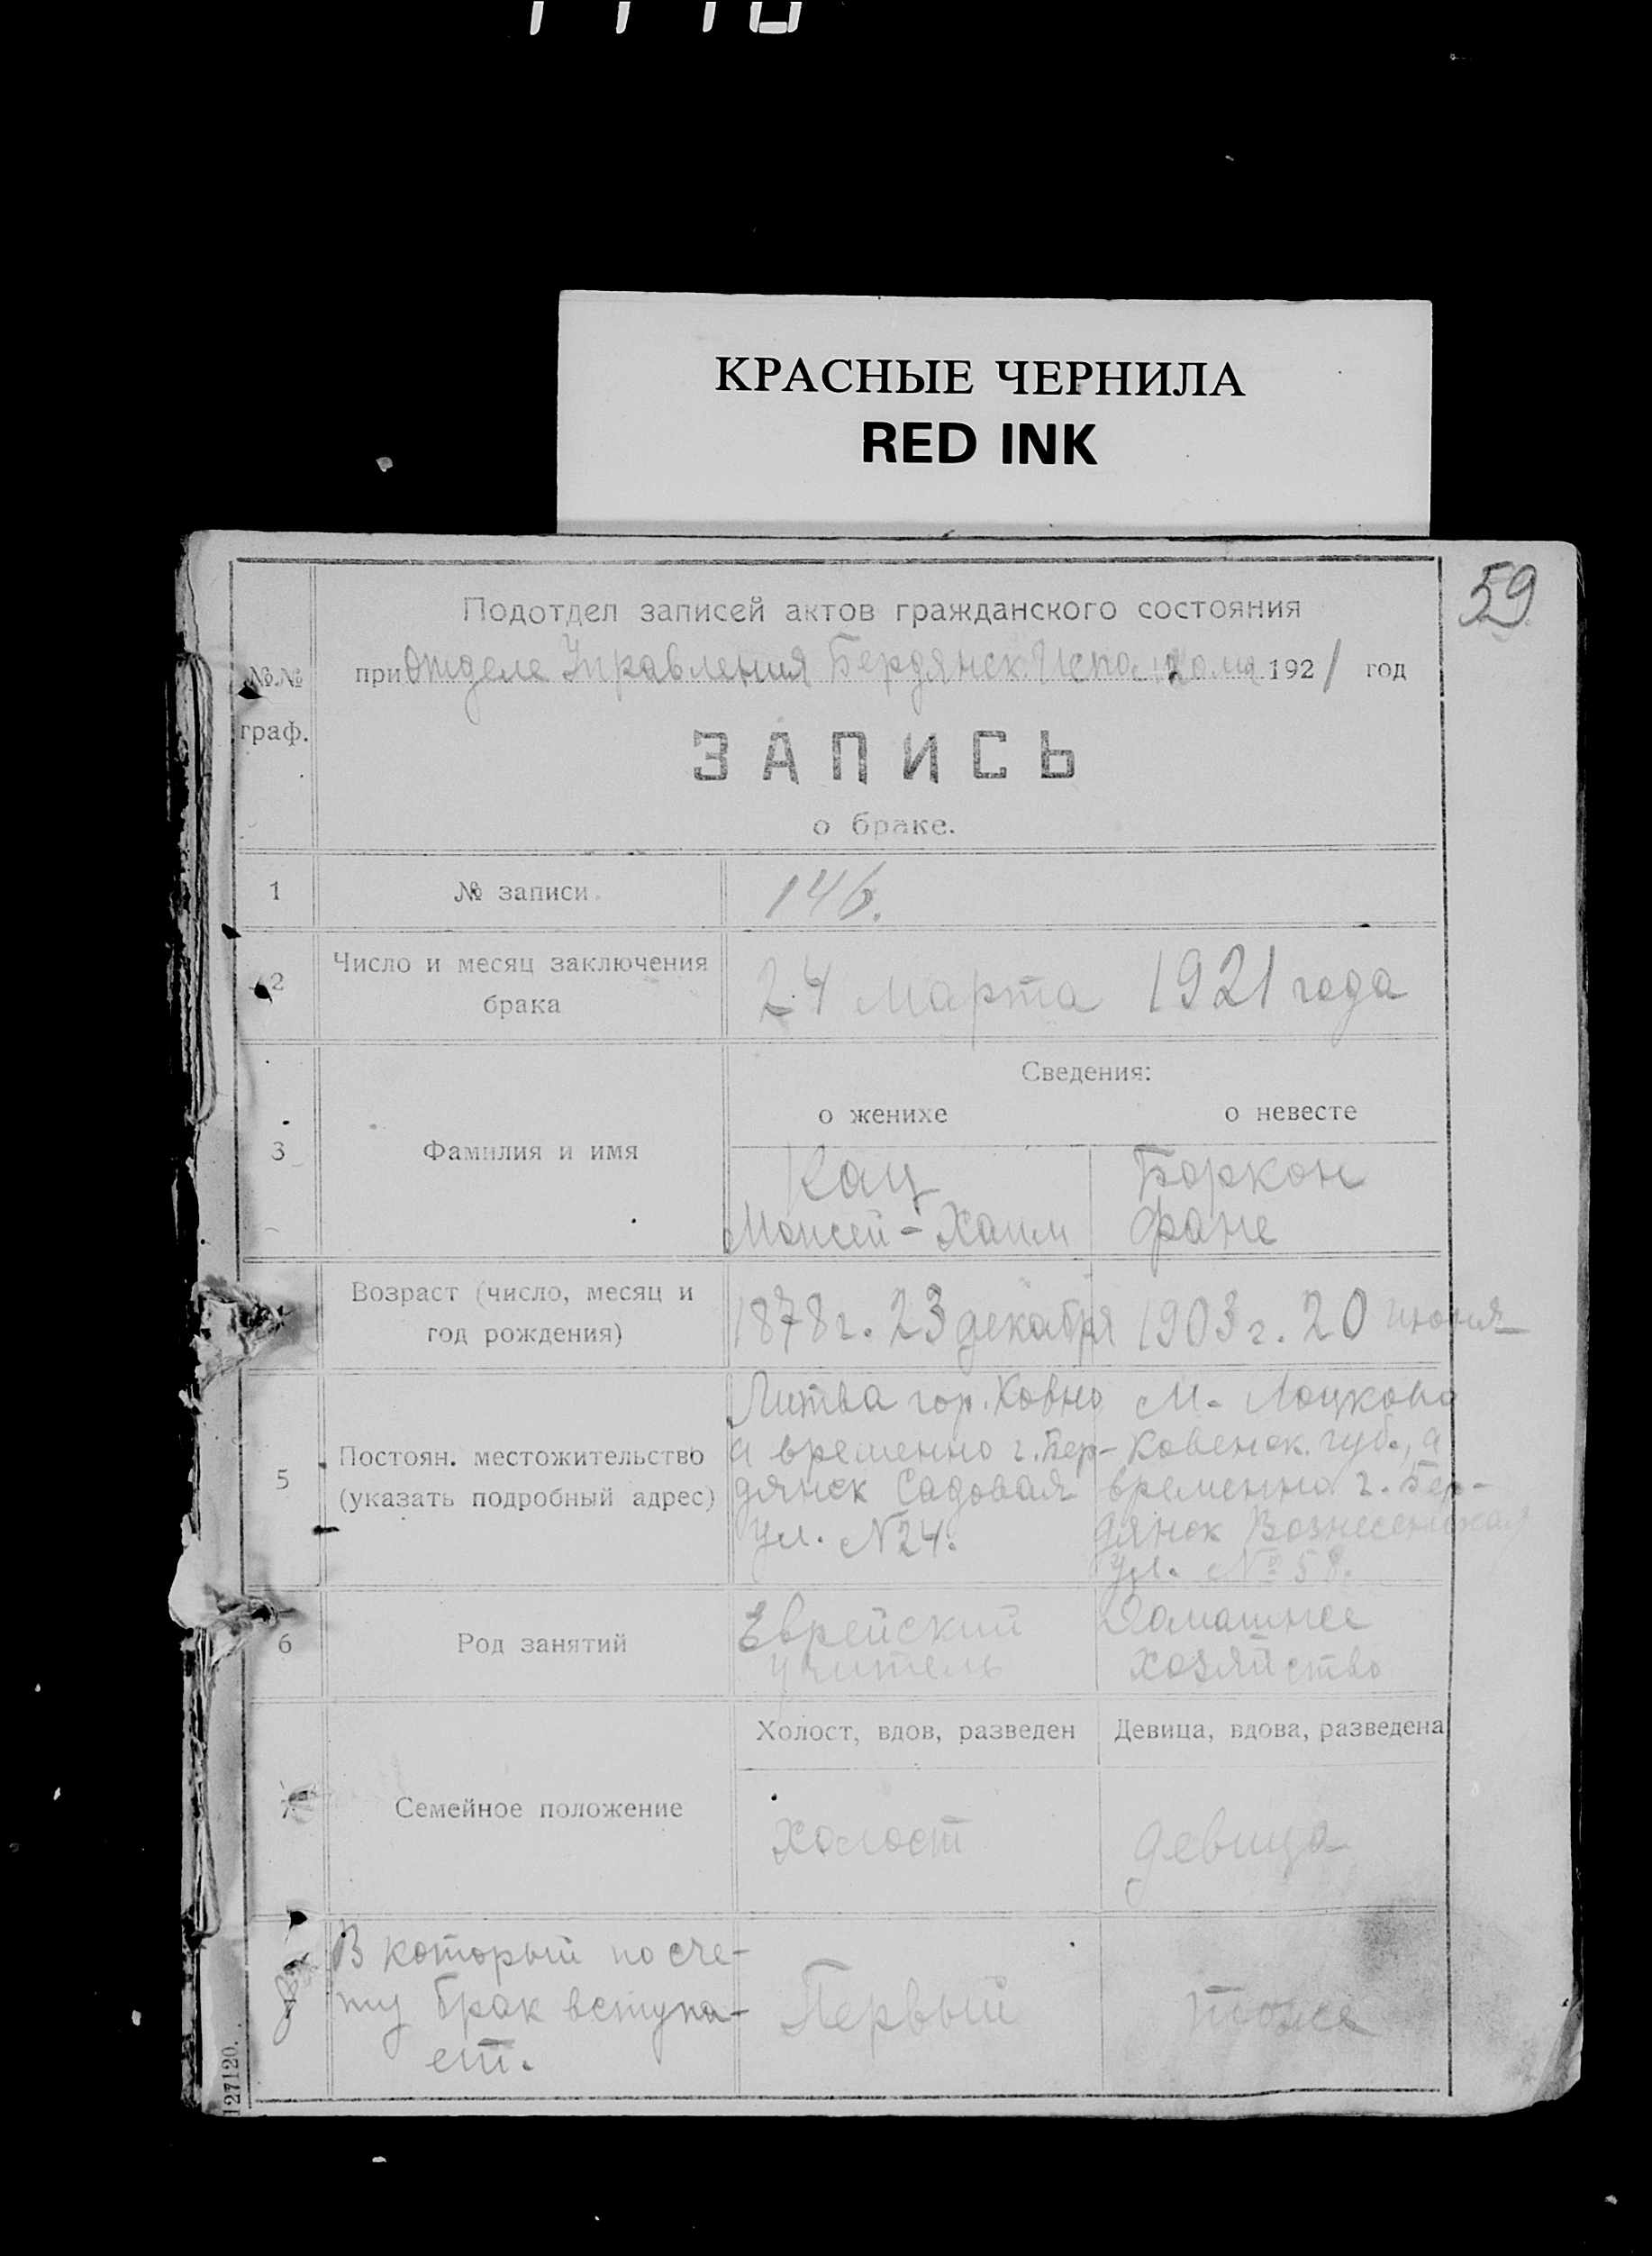 КРАСНЫЕ ЧЕРНИЛА
RED INK
59
Подотдел записей актов гражданского состояния
№№ граф.
при Отделе Управления Бердянск. Исполкома 1921 год
ЗАПИСЬ
о браке.
1 № записи. 146.
2 Число и месяц заключения
брака
24 марта 1921 года
Сведения:
о женихе о невесте
3 Фамилия и имя
Кац Боркон
Моисей-Хаим Фане
Возраст (число, месяц и
год рождения)
1878 г. 23 декабря 1903 г. 20 июня
5 Постоян. местожительство
(указать подробный адрес)
Литва гор. Ковно
а временно г. Бер-
дянск Садовая
ул. № 24.
М. Лацково
Ковенск. губ., а
временно г. Бер-
дянск Вознесенская
ул. № 58.
6 Род занятий
Еврейский
учитель
Домашнее
хозяйство
Холост, вдов, разведен Девица, вдова, разведена
7 Семейное положение
холост девица
8 В который по сче-
ту брак вступа-
ет.
Первый тоже
127120.